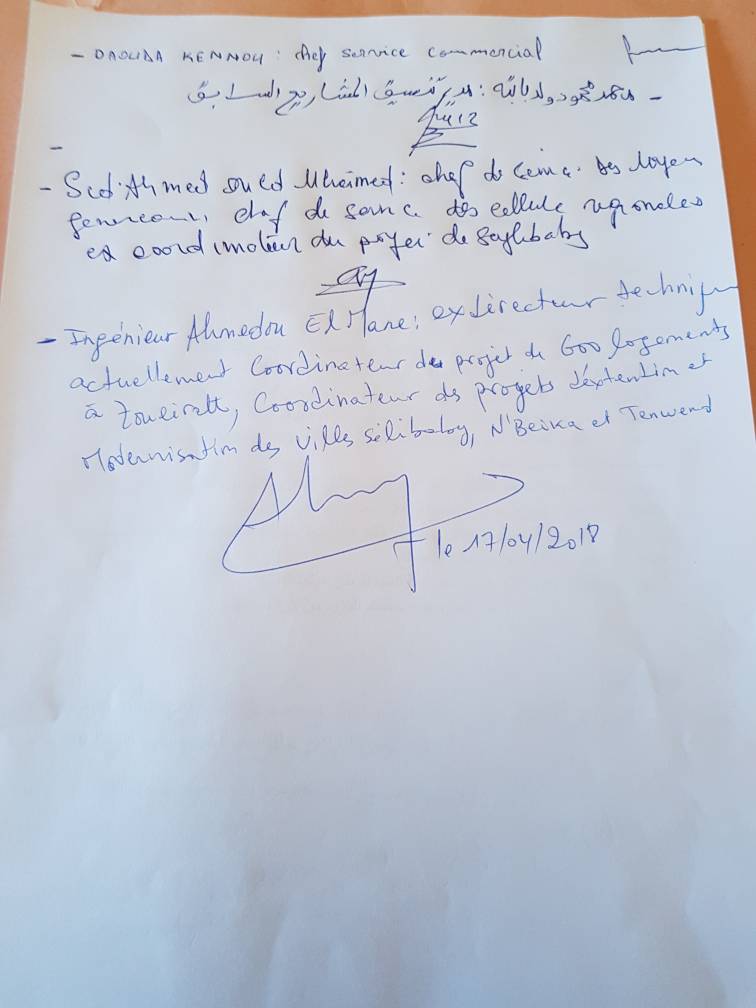 - DAOUDA KENNOU : chef service commercial
- محمد محمود ولد بابته : مدير تنسيق المشاريع السابق
-
- Sid Ahmed ould Mhaimed : chef de service des Moyens
generaux, chef de service des cellule regionales
ex coordinateur du projet de Seylibaby
- Ingénieur Ahmedou El Mane : ex directeur technique
actuellement Coordinateur du projet de 600 logements
à Zoueiratt, Coordinateur des projets d'extention et
Modernisation des villes sélibaby, N'Beika et Tenwend
le 17/04/2018